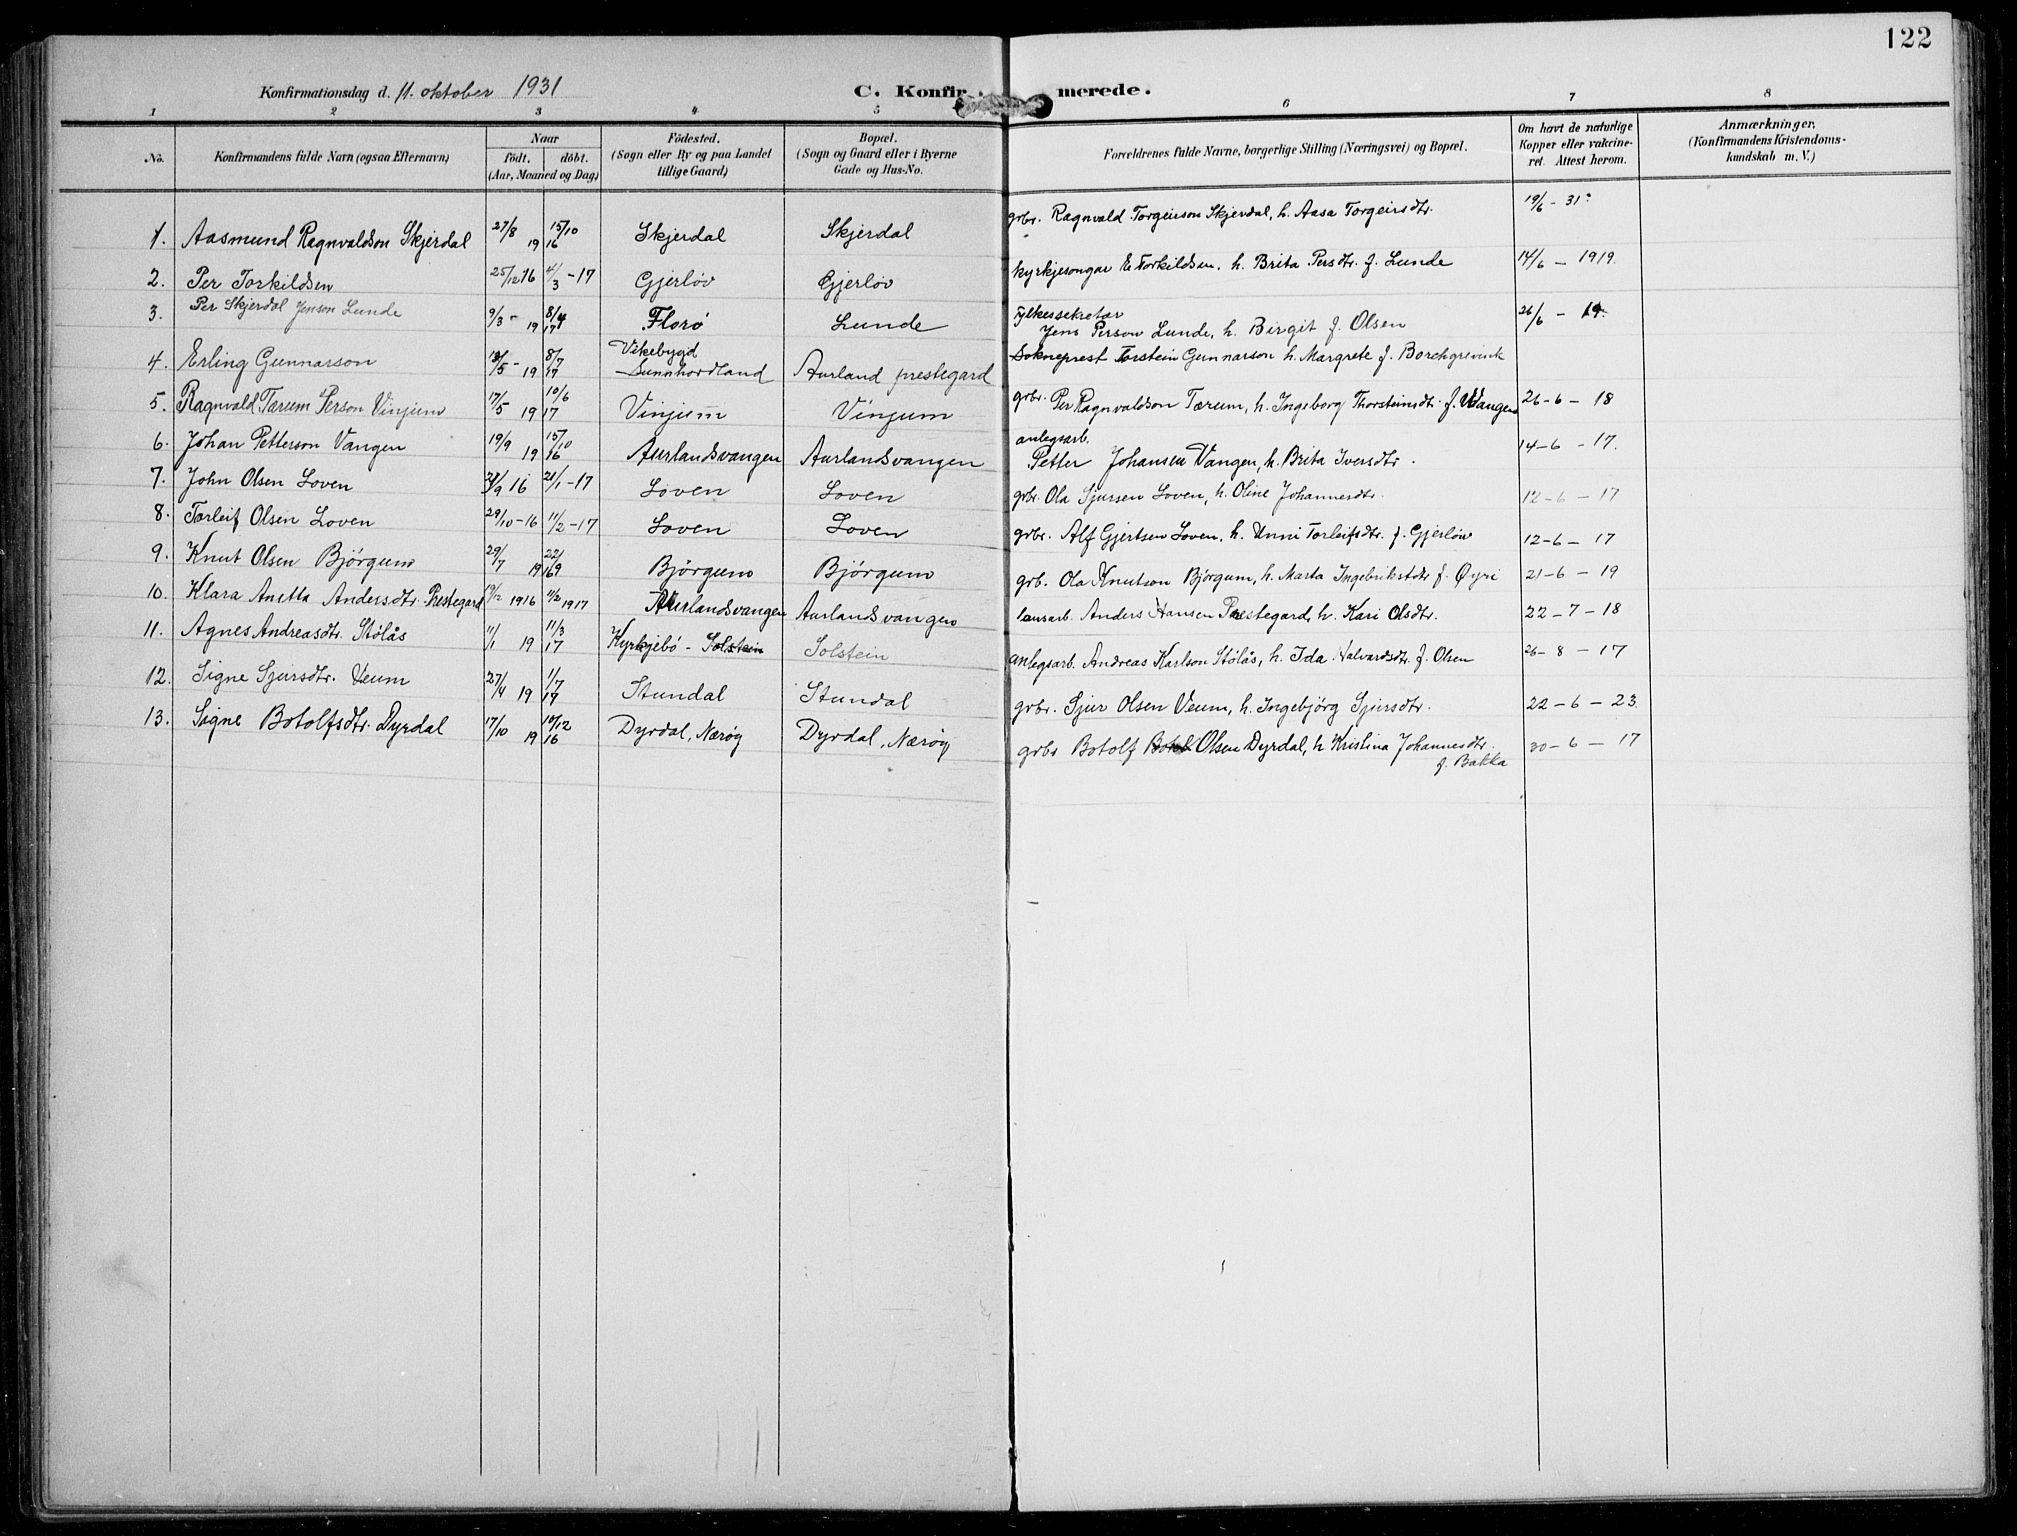 122
Konfirmationsdag d. 11. oktober 1931
C. Konfir merede.
1 2 3 4 5 6 7 8
No. Konfirmandens fulde Navn (ogsaa Efternavn) Naar født. døbt. (Aar, Maaned og Dag) Fødested. (Sogn eller By og paa Landet tillige Gaard) Bopæl. (Sogn og Gaard eller i Byerne Gade og Hus-No. Forældrenes fulde Navne, borgerlige Stilling (Næringsvei) og Bopæl. Om havt de naturlige Kopper eller vakcineret. Attest herom. Anmærkninger, (Konfirmandens Kristendomskundskab m. V.)
1. Aasmund Ragnvaldson Skjerdal 27/8 1916 15/10 Skjerdal Skjerdal grbr. Ragnvald Torgeirson Skjerdal, h. Aasa Torgeirsdtr. 19/6 - 31
2. Per Torkildsen 25/12 16 4/3 - 17 Gjerløv Gjerløv kyrkjesongar E. Torkildsen, h. Brita Persdtr. f. Lunde 14/6 - 1919.
3. Per Skjerdal Jenson Lunde 9/3 - 1917 8/4 Florø Lunde Fylkessekretær Jens Person Lunde, h. Birgit f. Olsen 26/6 - 19.
4. Erling Gunnarson 13/5 - 1917 8/7 Vikebygd Sunnhordland Aurland prestegard Sokneprest Torstein Gunnarson h. Margrete f. Borchgrevink
5. Ragnvald Tærum Person Vinjum 17/5 1917 10/6 Vinjum Vinjum grbr. Per Ragnvaldson Tærum, h. Ingeborg Thorsteinsdtr. f. Vangen 26 - 6 - 18
6. Johan Petterson Vangen 19/9 1916 15/10 Aurlandsvangen Aurlandsvangen anlegsarb. Petter Johansen Vangen, h. Brita Iversdtr. 14 - 6 - 17.
7. John Olsen Loven /9 16 21/1 - 17 Loven Loven grbr. Ola Sjursen Loven, h. Oline Johannesdtr. 12 - 6 - 17
8. Torleif Olsen Loven 29/10 - 16 11/2 - 17 Loven Loven grbr. Alf Gjertsen Loven, h. Unni Torleifsdtr. f. Gjerløw 12 - 6 - 17
9. Knut Olsen Bjørgum 29/7 1916 22/9 Bjørgum Bjørgum grb. Ola Knutson Bjørgum, h. Marta Ingebriktsdtr f. Øyri 21 - 6 - 19
10. Klara Anetta Andersdtr. Prestegard 19/12 1916 11/2 1917 Aurlandsvangen Aurlandsvangen Anders Hansen Prestegard, h. Kari Olsdtr. 22 - 7 - 18
11. Agnes Andreasdtr. Stølås 11/1 1917 11/3 Kyrkjebø - Solstein Solstein anlegsarb. Andreas Karlson Stølås, h. Ida Halvardsdtr. f. Olsen 26 - 8 - 17
12. Signe Sjursdtr. Veum 27/4 1917 1/7 Stundal Stundal grbr. Sjur Olsen Veum, h. Ingebjørg Sjursdtr. 22 - 6 - 23.
13. Signe Botolfsdtr. Dyrdal 17/10 1916 10/12 Dyrdal, Nærøy Dyrdal, Nærøy grbr Botolf Olsen Dyrdal, h Kristina Johannesdtr. f. Bakka 30 - 6 - 17